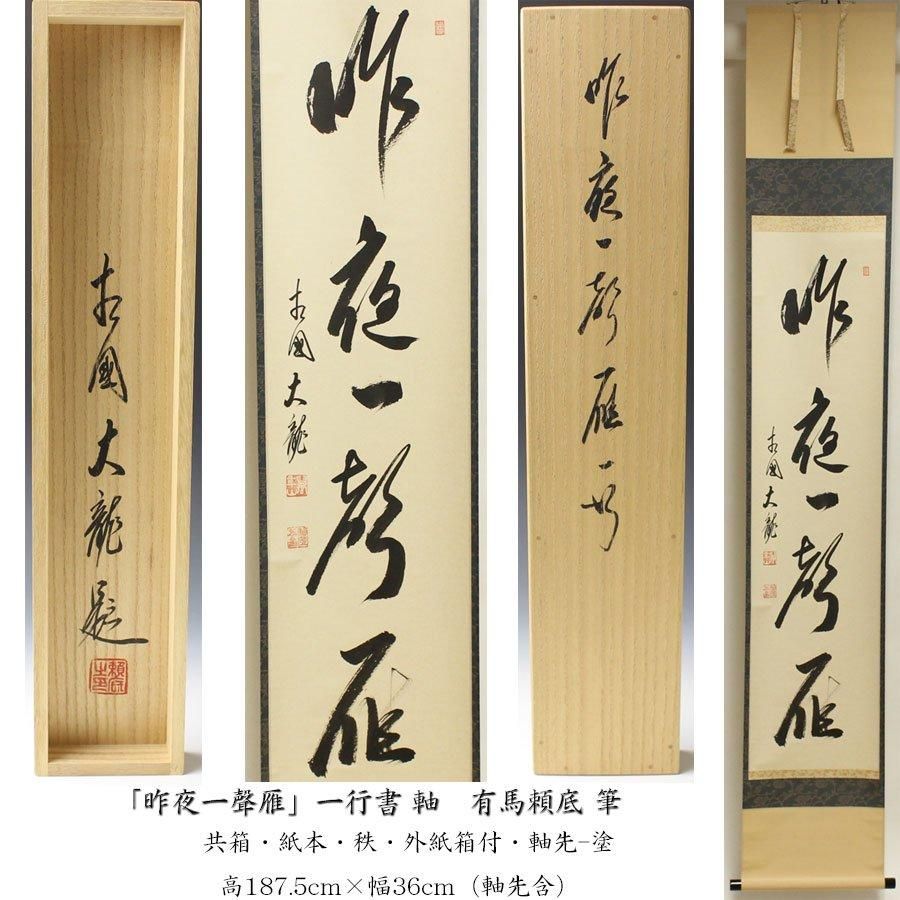 相國大龍題
昨夜一聲雁
相國大龍
昨夜一聲雁 一行
昨夜一聲雁
相國大龍
「昨夜一聲雁」一行書 軸 有馬頼底 筆
共箱・紙本・秩・外紙箱付・軸先-塗
高187.5cm×幅36cm（軸先含）